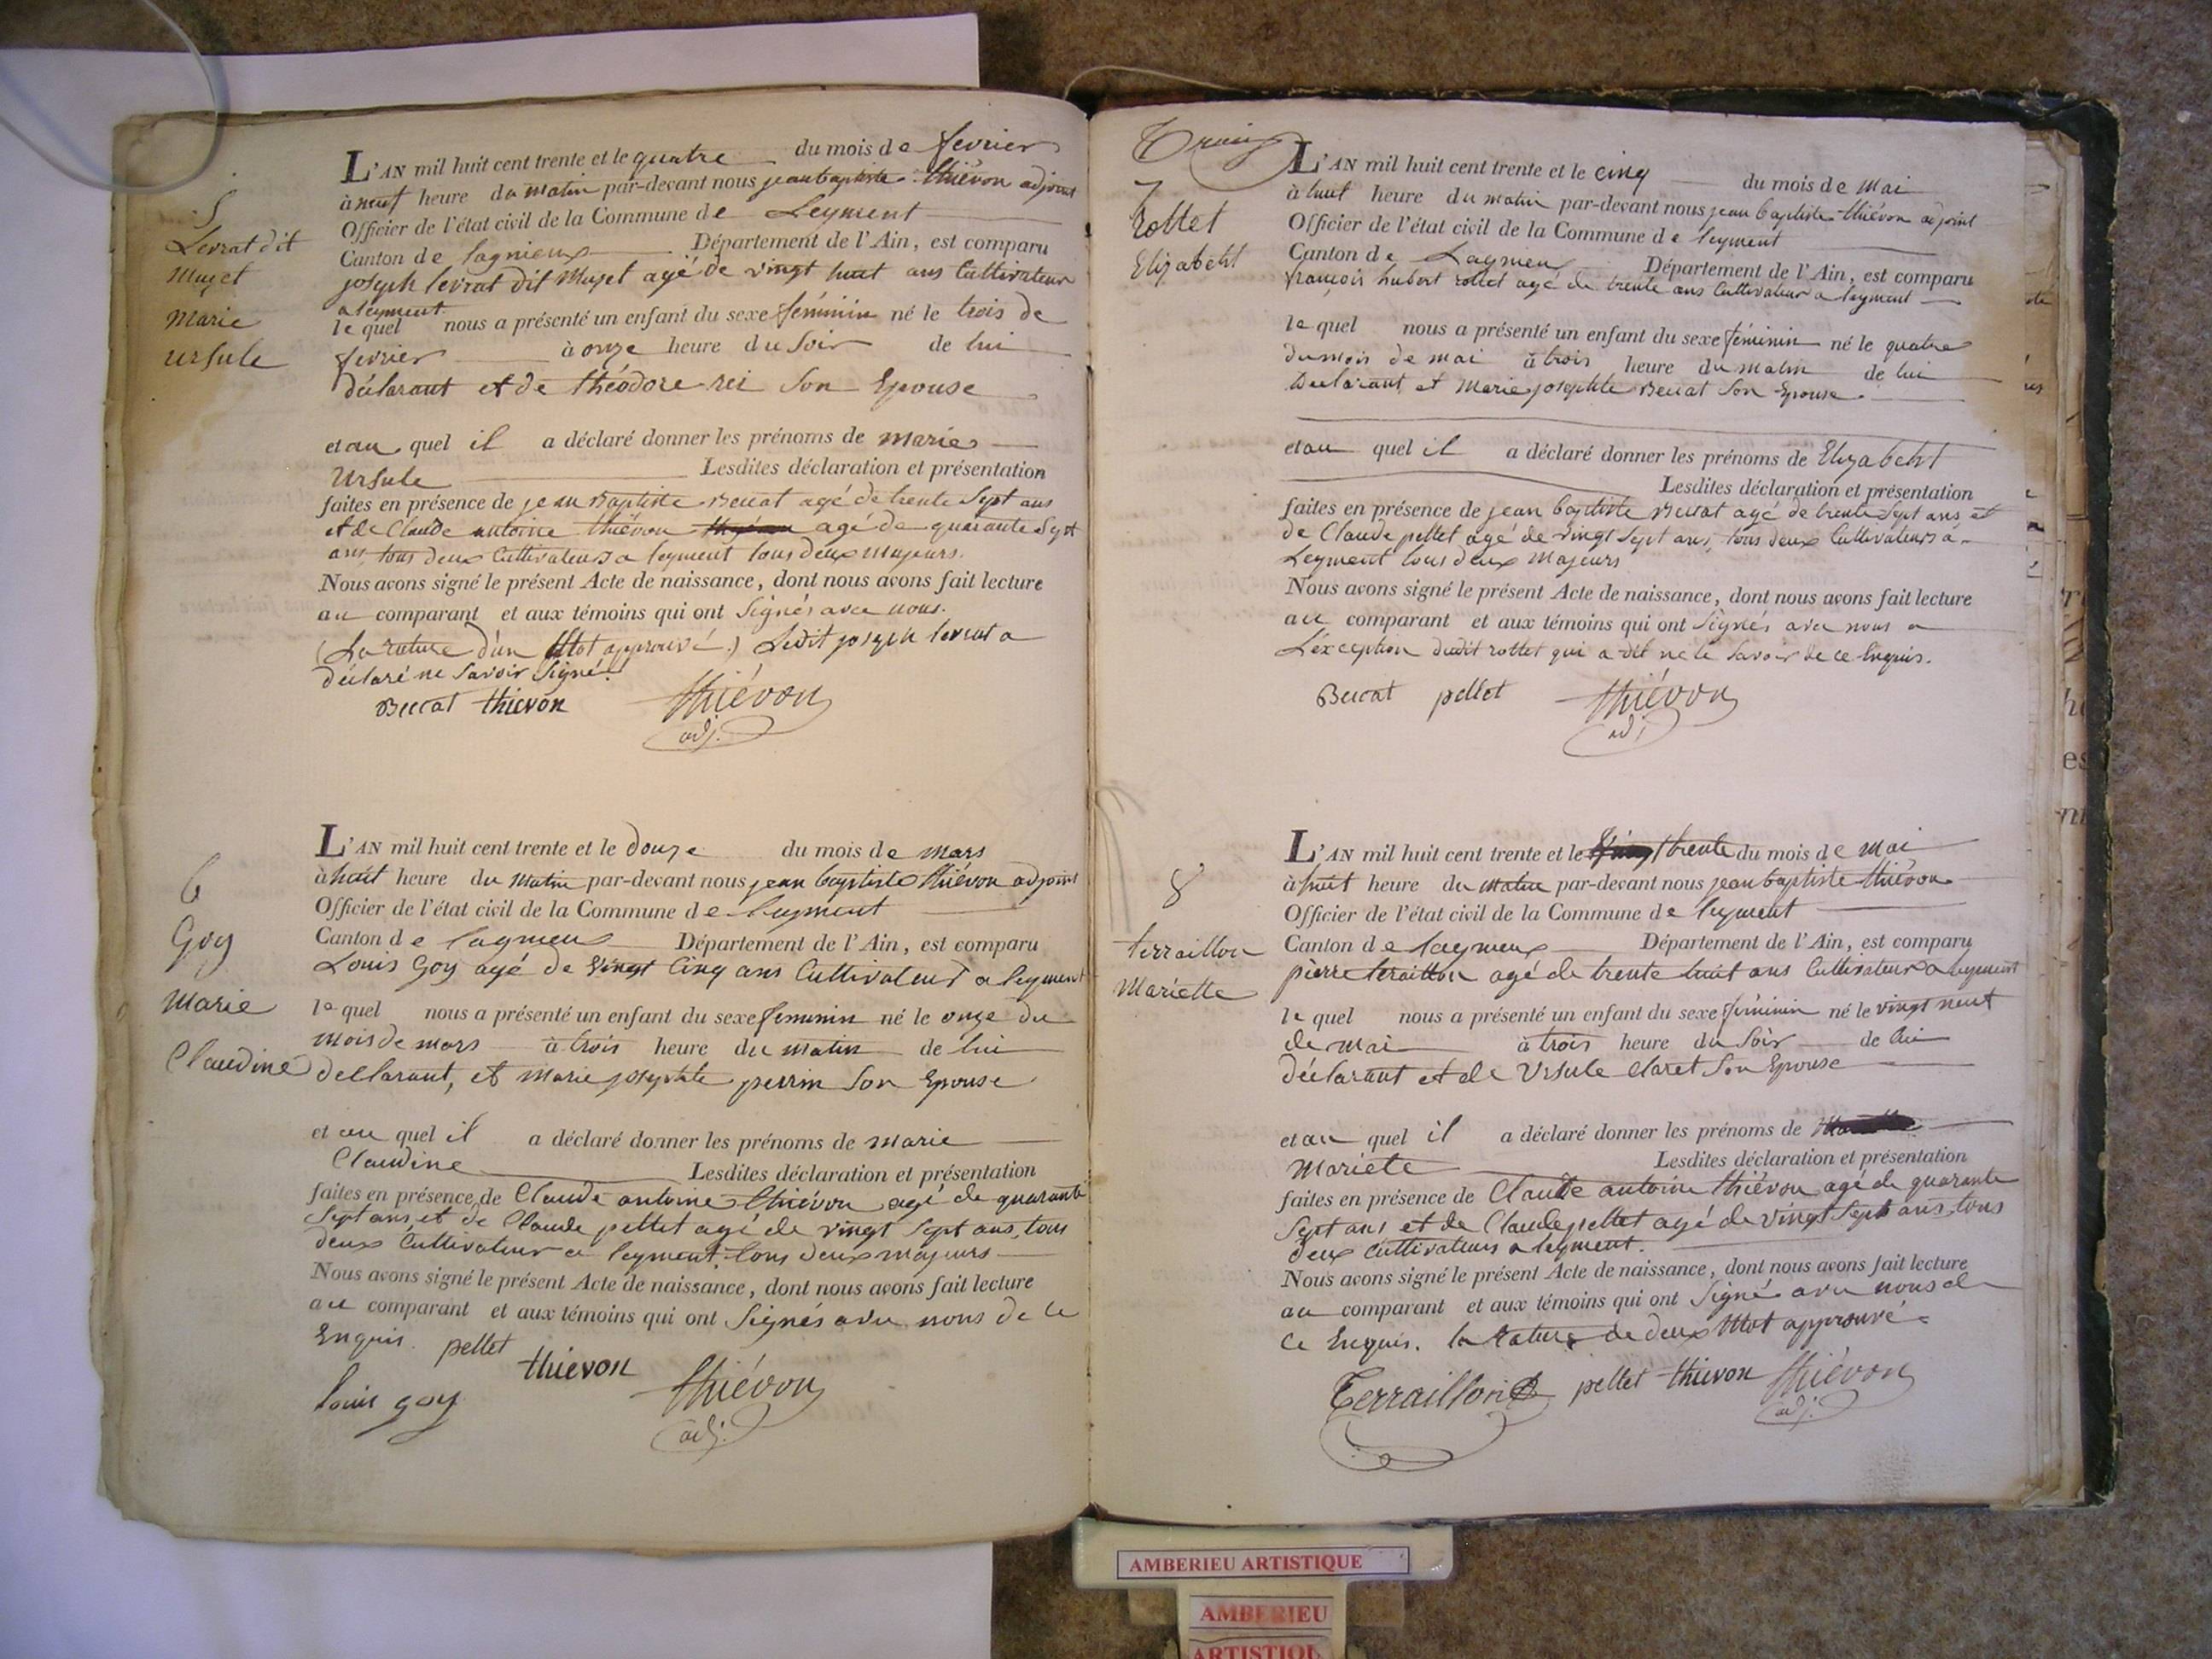 5
Levrat dit
Muzet
Marie
Ursule
L'AN mil huit cent trente et le quatre du mois de fevrier
à neuf heure du matin par-devant nous jean baptiste thiévon adjoint
Officier de l'état civil de la Commune de Leyment
Canton de lagnieux Département de l'Ain, est comparu
joseph levrat dit Muzet agé de vingt huit ans Cultivateur
a leyment
le quel nous a présenté un enfant du sexe féminin né le trois de
fevrier à onze heure du Soir de lui
déclarant et de théodore rei Son Epouse
et au quel il a déclaré donner les prénoms de marie
Ursule Lesdites déclaration et présentation
faites en présence de jean Baptiste Beccat agé de trente Sept ans
et de Claude antoine thiévon agé de quarante Sept
ans, tous deux Cultivateurs a leyment tous deux majeurs.
Nous avons signé le présent Acte de naissance, dont nous avons fait lecture
au comparant et aux témoins qui ont Signés avec nous.
(La rature d'un Mot approuvé.) Ledit joseph levrat a
déclaré ne Savoir Signé.
Beccat thievon thiévon
adj.
6
Goy
Marie
Claudine
L'AN mil huit cent trente et le douze du mois de mars
à huit heure du matin par-devant nous jean baptiste thiévon adjoint
Officier de l'état civil de la Commune de leyment
Canton de lagnieux Département de l'Ain, est comparu
Louis Goy agé de vingt Cinq ans Cultivateur a leyment
le quel nous a présenté un enfant du sexe féminin né le onze du
mois de mars à trois heure du matin de lui
declarant, et marie josephte perrin Son Epouse
et au quel il a déclaré donner les prénoms de marie
Claudine Lesdites déclaration et présentation
faites en présence de Claude antoine thiévon agé de quarante
Sept ans et de Claude pellet agé de vingt Sept ans, tous
deux Cultivateur a leyment, tous deux majeurs
Nous avons signé le présent Acte de naissance, dont nous avons fait lecture
au comparant et aux témoins qui ont Signés avec nous de ce
Enquis. pellet
thievon thiévon
louis goy
adj.
7
rottet
Elizabeht
L'AN mil huit cent trente et le cinq du mois de mai
à huit heure du matin par-devant nous jean baptiste thiévon adjoint
Officier de l'état civil de la Commune de leyment
Canton de Lagnieux Département de l'Ain, est comparu
françois hubert rottet agé de trente ans Cultivateur a leyment
le quel nous a présenté un enfant du sexe féminin né le quatre
du mois de mai à trois heure du matin de lui
Declarant, et Marie josephte Beccat Son Epouse.
et au quel il a déclaré donner les prénoms de Elizabeht
Lesdites déclaration et présentation
faites en présence de jean baptiste Beccat agé de trente Sept ans, et
de Claude pellet agé de vingt Sept ans, tous deux Cultivateurs a
Leyment tous deux majeurs
Nous avons signé le présent Acte de naissance, dont nous avons fait lecture
au comparant et aux témoins qui ont Signés avec nous a
L'exception dudit rottet qui a dit ne le Savoir de ce Enquis.
Beccat pellet thiévon
adj
8
terraillon
Mariette
L'AN mil huit cent trente et le trente du mois de mai
à huit heure du matin par-devant nous jean baptiste thiévon
Officier de l'état civil de la Commune de leyment
Canton de lagnieux Département de l'Ain, est comparu
pierre teraillon agé de trente huit ans Cultivateur a leyment
le quel nous a présenté un enfant du sexe féminin né le vingt neuf
de mai à trois heure du Soir de lui
déclarant et de Ursule Claret Son Epouse
et au quel il a déclaré donner les prénoms de
Mariete Lesdites déclaration et présentation
faites en présence de Claude antoine thiévon agé de quarante
Sept ans et de Claude pellet agé de vingt Sept ans, tous
deux Cultivateurs a leyment.
Nous avons signé le présent Acte de naissance, dont nous avons fait lecture
au comparant et aux témoins qui ont Signé avec nous de
ce Enquis. la Rature de deux Mot approuvé
Terraillon pellet thievon thiévon
adj.
AMBERIEU ARTISTIQUE
AMBERIEU
ARTISTIQUE